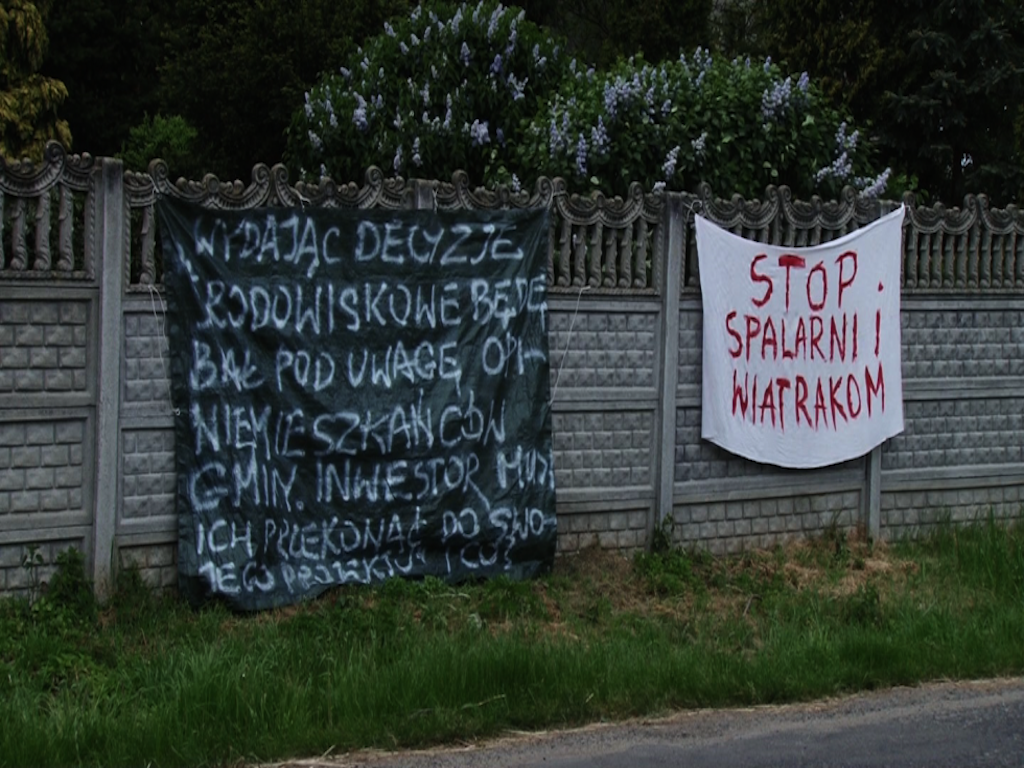 WYDAJĄC DECYZJE
ŚRODOWISKOWE BĘDĘ
BAŁ POD UWAGĘ OPI-
NIE MIESZKAŃCÓW
GMIN. INWESTOR MUSI
ICH PRZEKONAĆ DO SWO-
JEGO PROJEKTU I CO?
STOP
SPALARNI I
WIATRAKOM